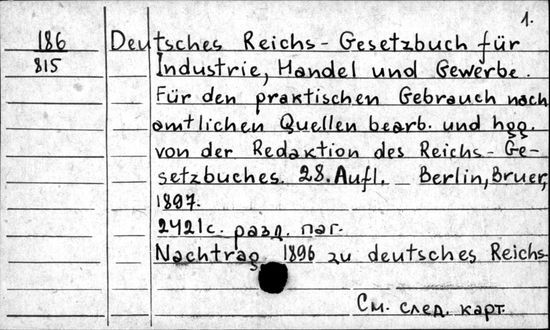 1.
186 Deutsches Reichs-Gesetzbuch für
815 Industrie, Handel und Gewerbe.
Für den praktischen Gebrauch nach
amtlichen Quellen bearb. und hgg.
von der Redaktion des Reichs-Ge-
setzbuches. 28. Aufl. Berlin, Bruer,
1897.
2421c. разд. паг.
Nachtrag 1896 zu deutsches Reichs-
См. след. карт.